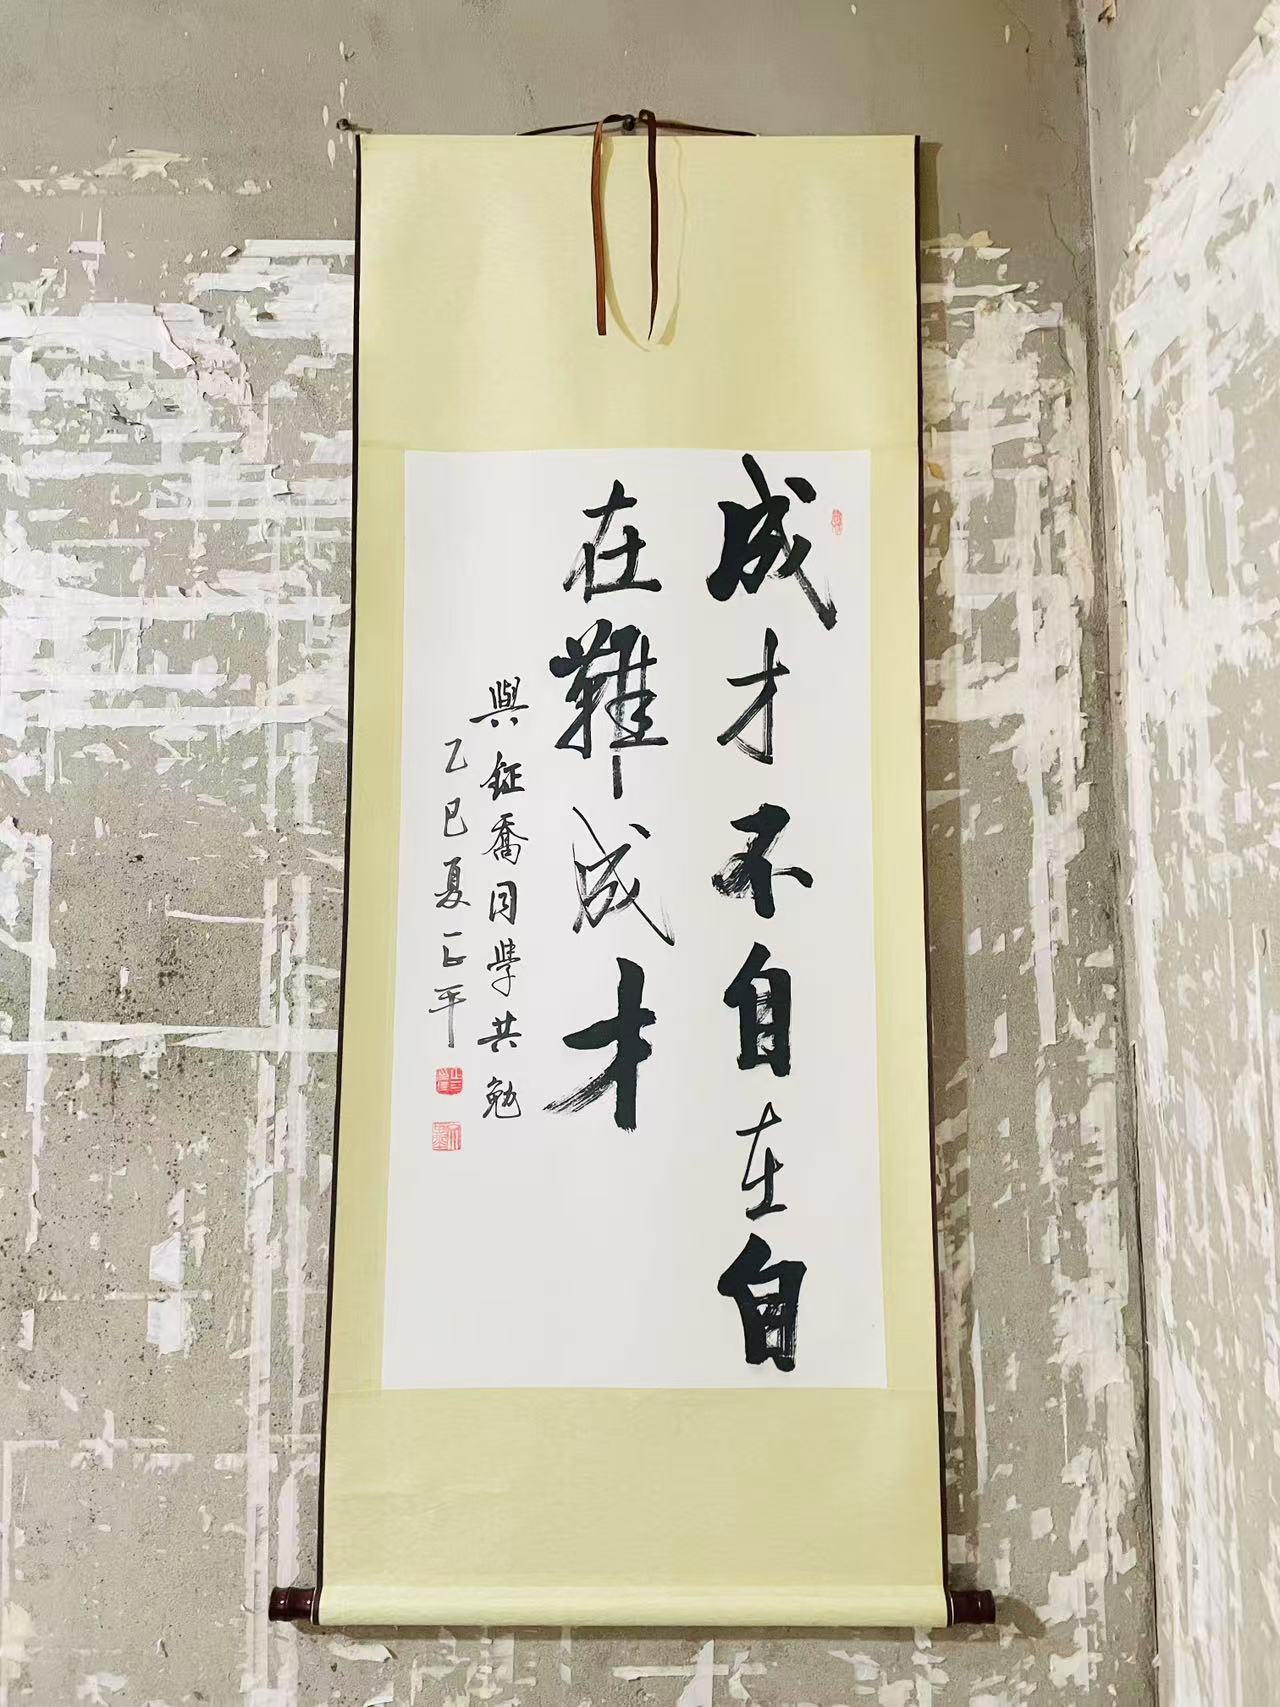 成才不自在自
在難成才
與鉦喬同學共勉
乙巳夏正平